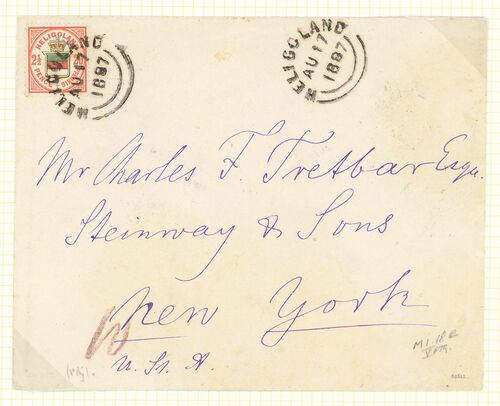 HELIGOLAND
2½
PENCE
HELIGOLAND
AU 17
1887
HELIGOLAND
AU 17
1887
Mr Charles F. Tretbar Esqu.
Steinway & Sons
New York
U. St. A.
10